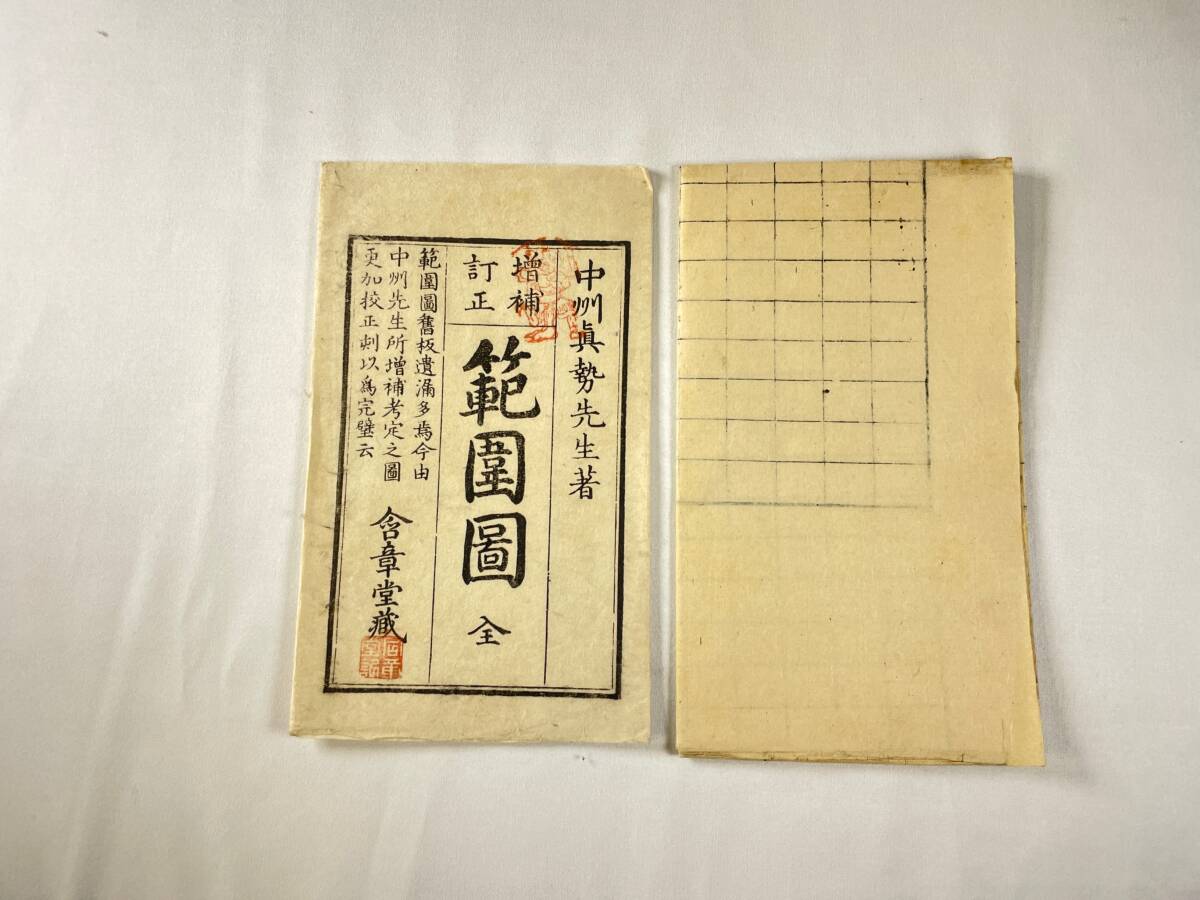 中州眞勢先生著
增補
訂正
範圍圖 全
範圍圖舊板遺漏多焉今由
中州先生所增補考定之圖
更加挍正刺以爲完璧云
含章堂藏